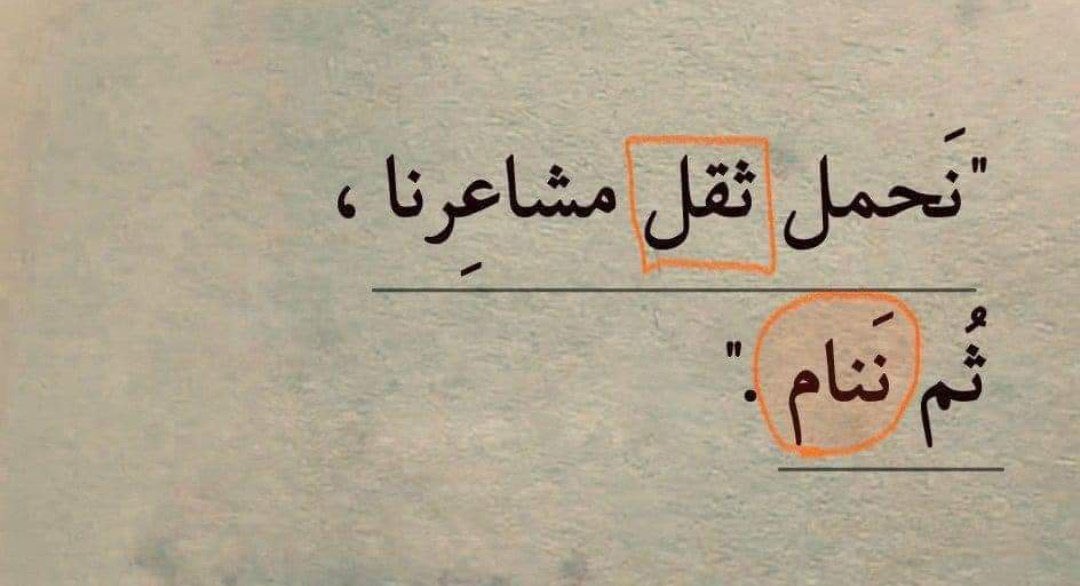 "نَحمل ثقل مشاعرِنا ،
ثُم نَنام ."